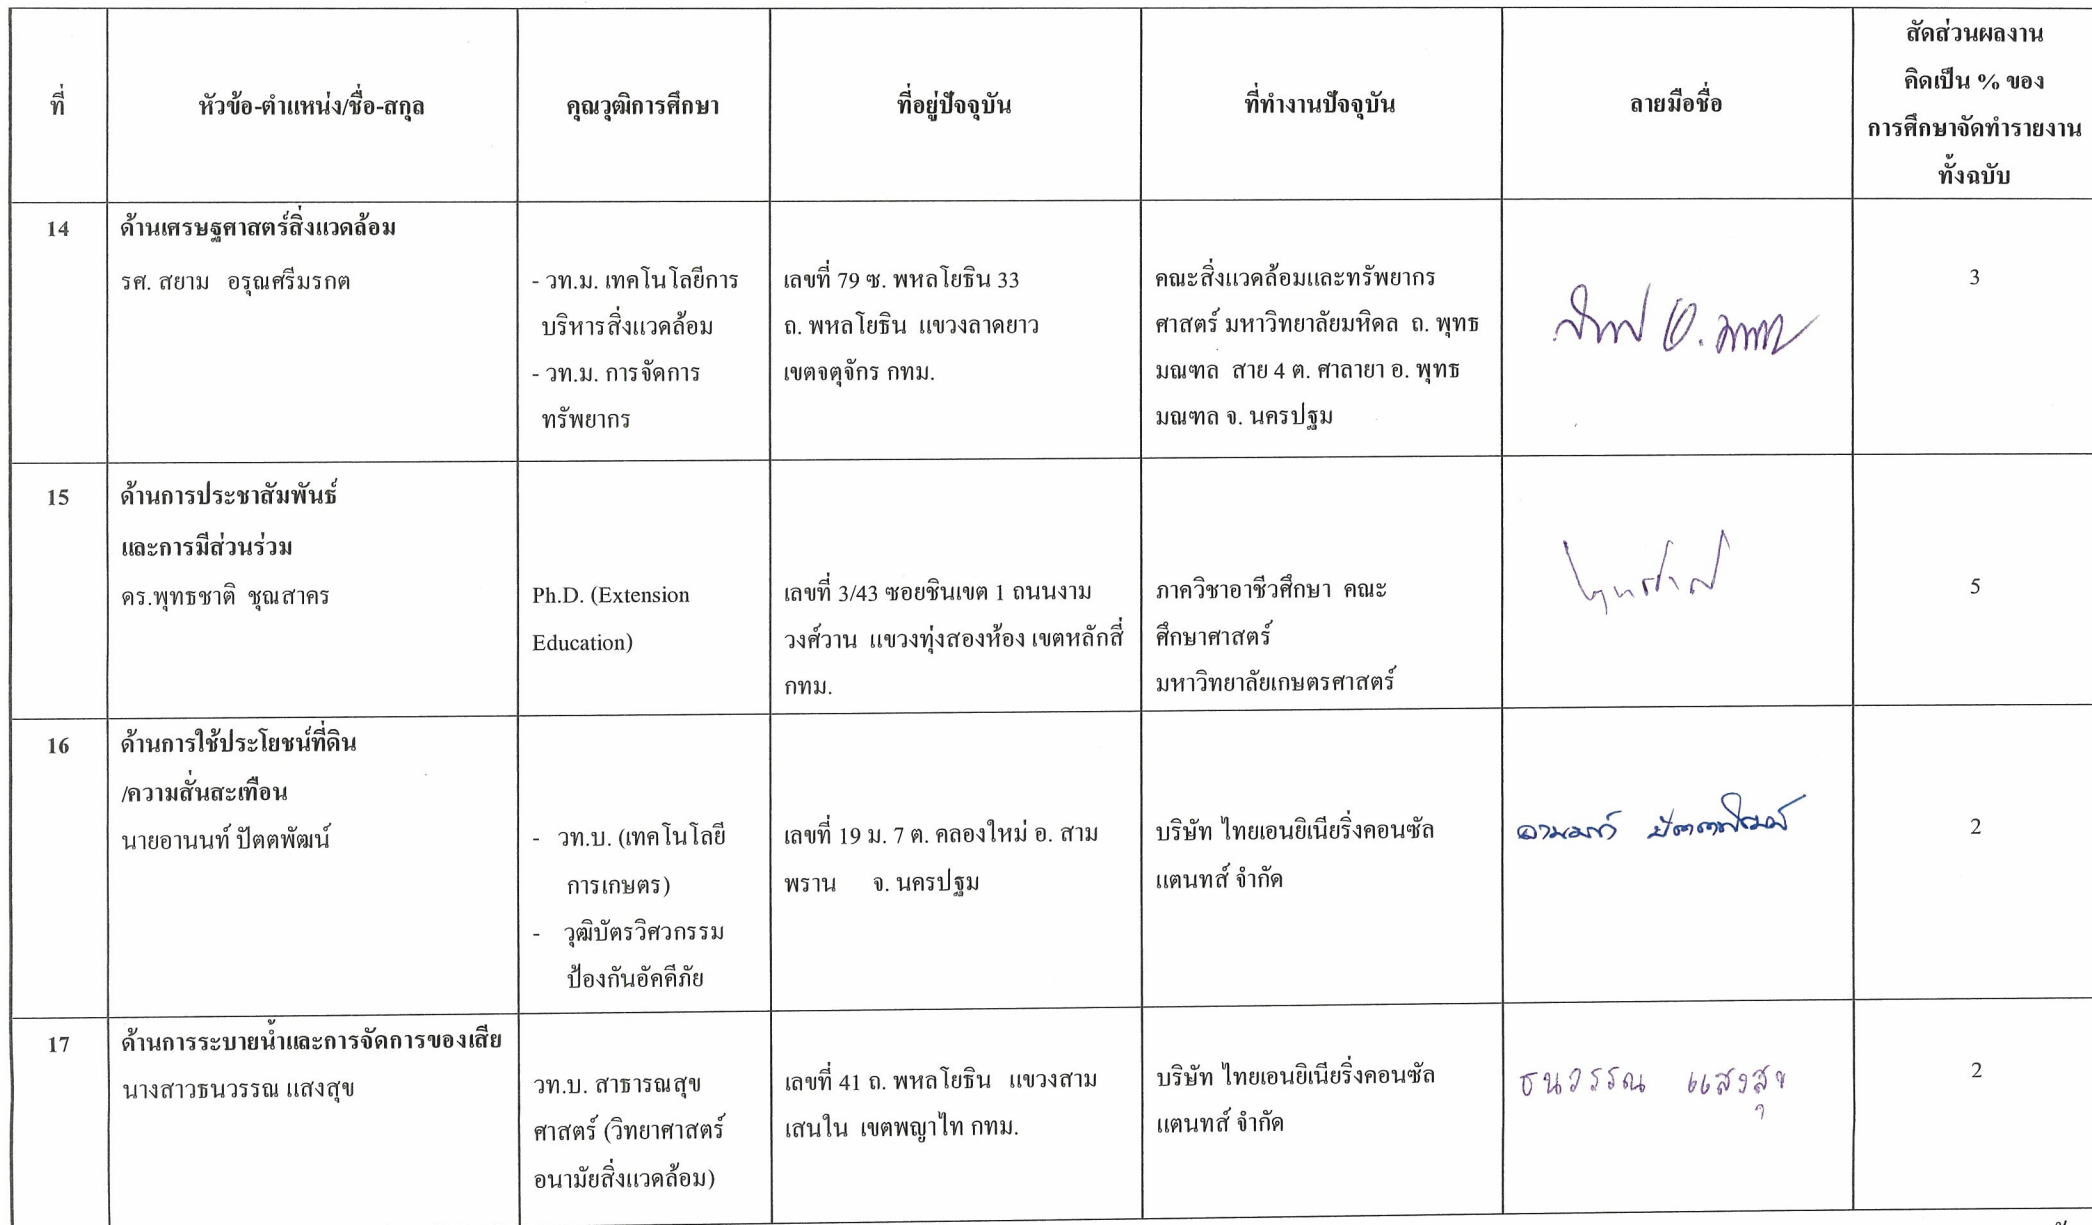 ที่
หัวข้อ-ตำแหน่ง/ชื่อ-สกุล
คุณวุฒิการศึกษา
ที่อยู่ปัจจุบัน
ที่ทำงานปัจจุบัน
ลายมือชื่อ
สัดส่วนผลงาน
คิดเป็น % ของ
การศึกษาจัดทำรายงาน
ทั้งฉบับ
14
ด้านเศรษฐศาสตร์สิ่งแวดล้อม
รศ. สยาม อรุณศรีมรกต
- วท.ม. เทคโนโลยีการ
บริหารสิ่งแวดล้อม
- วท.ม. การจัดการ
ทรัพยากร
เลขที่ 79 ซ. พหลโยธิน 33
ถ. พหลโยธิน แขวงลาดยาว
เขตจตุจักร กทม.
คณะสิ่งแวดล้อมและทรัพยากร
ศาสตร์ มหาวิทยาลัยมหิดล ถ. พุทธ
มณฑล สาย 4 ต. ศาลายา อ. พุทธ
มณฑล จ. นครปฐม
3
15
ด้านการประชาสัมพันธ์
และการมีส่วนร่วม
ดร.พุทธชาติ ชุณสาคร
Ph.D. (Extension
Education)
เลขที่ 3/43 ซอยชินเขต 1 ถนนงาม
วงศ์วาน แขวงทุ่งสองห้อง เขตหลักสี่
กทม.
ภาควิชาอาชีวศึกษา คณะ
ศึกษาศาสตร์
มหาวิทยาลัยเกษตรศาสตร์
5
16
ด้านการใช้ประโยชน์ที่ดิน
/ความสั่นสะเทือน
นายอานนท์ ปัตตพัฒน์
- วท.บ. (เทคโนโลยี
การเกษตร)
- วุฒิบัตรวิศวกรรม
ป้องกันอัคคีภัย
เลขที่ 19 ม. 7 ต. คลองใหม่ อ. สาม
พราน จ. นครปฐม
บริษัท ไทยเอนยิเนียริ่งคอนซัล
แตนทส์ จำกัด
อานนท์ ปัตตพัฒน์
2
17
ด้านการระบายน้ำและการจัดการของเสีย
นางสาวธนวรรณ แสงสุข
วท.บ. สาธารณสุข
ศาสตร์ (วิทยาศาสตร์
อนามัยสิ่งแวดล้อม)
เลขที่ 41 ถ. พหลโยธิน แขวงสาม
เสนใน เขตพญาไท กทม.
บริษัท ไทยเอนยิเนียริ่งคอนซัล
แตนทส์ จำกัด
ธนวรรณ แสงสุข
2